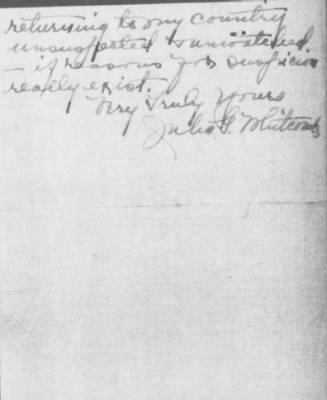 returning to my country
unsuspected & unwatched
— if reasons for suspicion
really exist.
Very Truly Yours
Julia G. Whitcomb